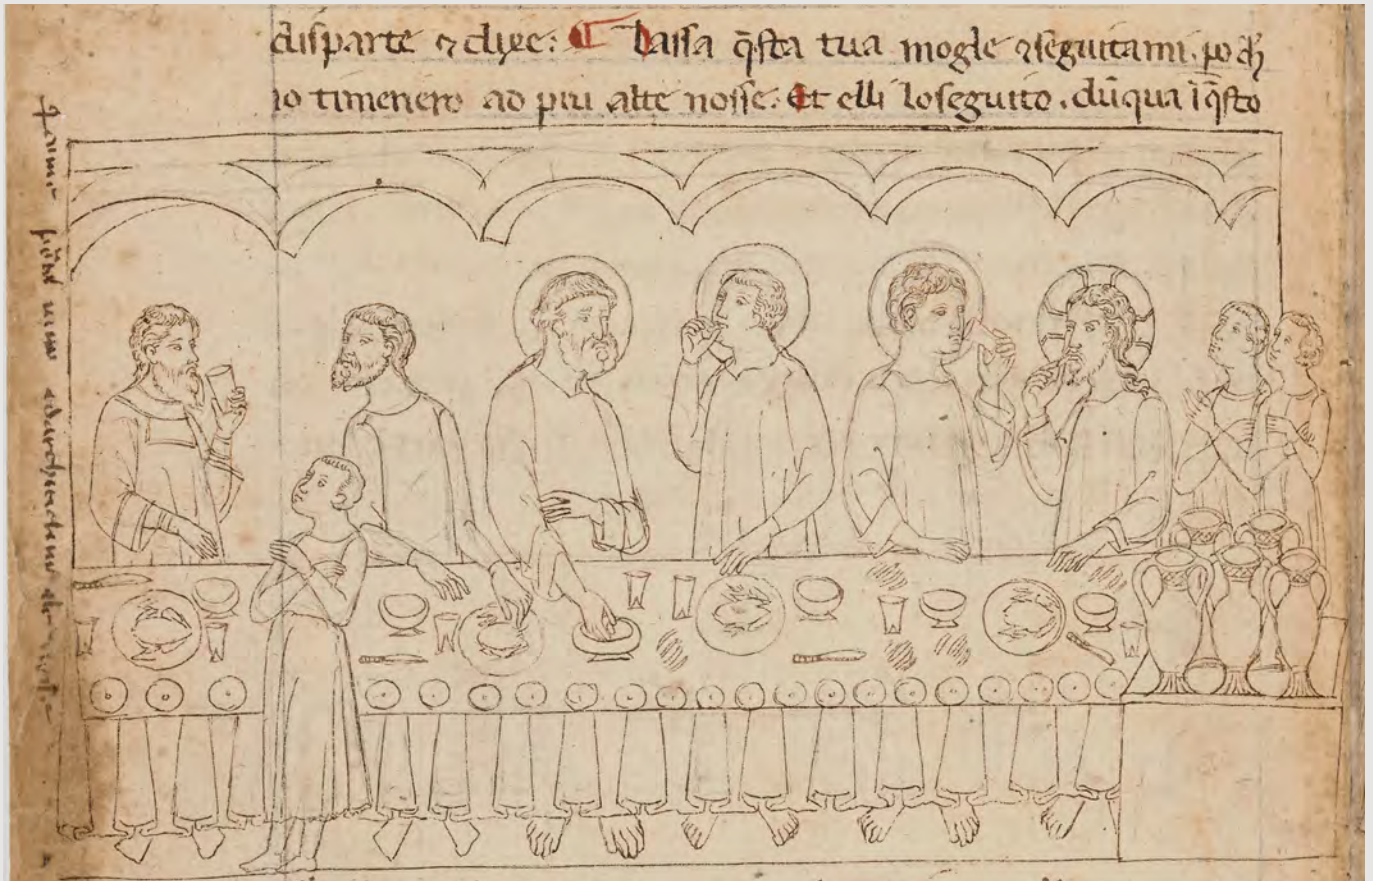 disparte ⁊ dixe: ¶ Lassa q̄sta tua mogle ⁊seguitami. ꝑo ch̄
io timenero ad piu alte nosse. Et elli loseguito. dūqua ī q̄sto
uino